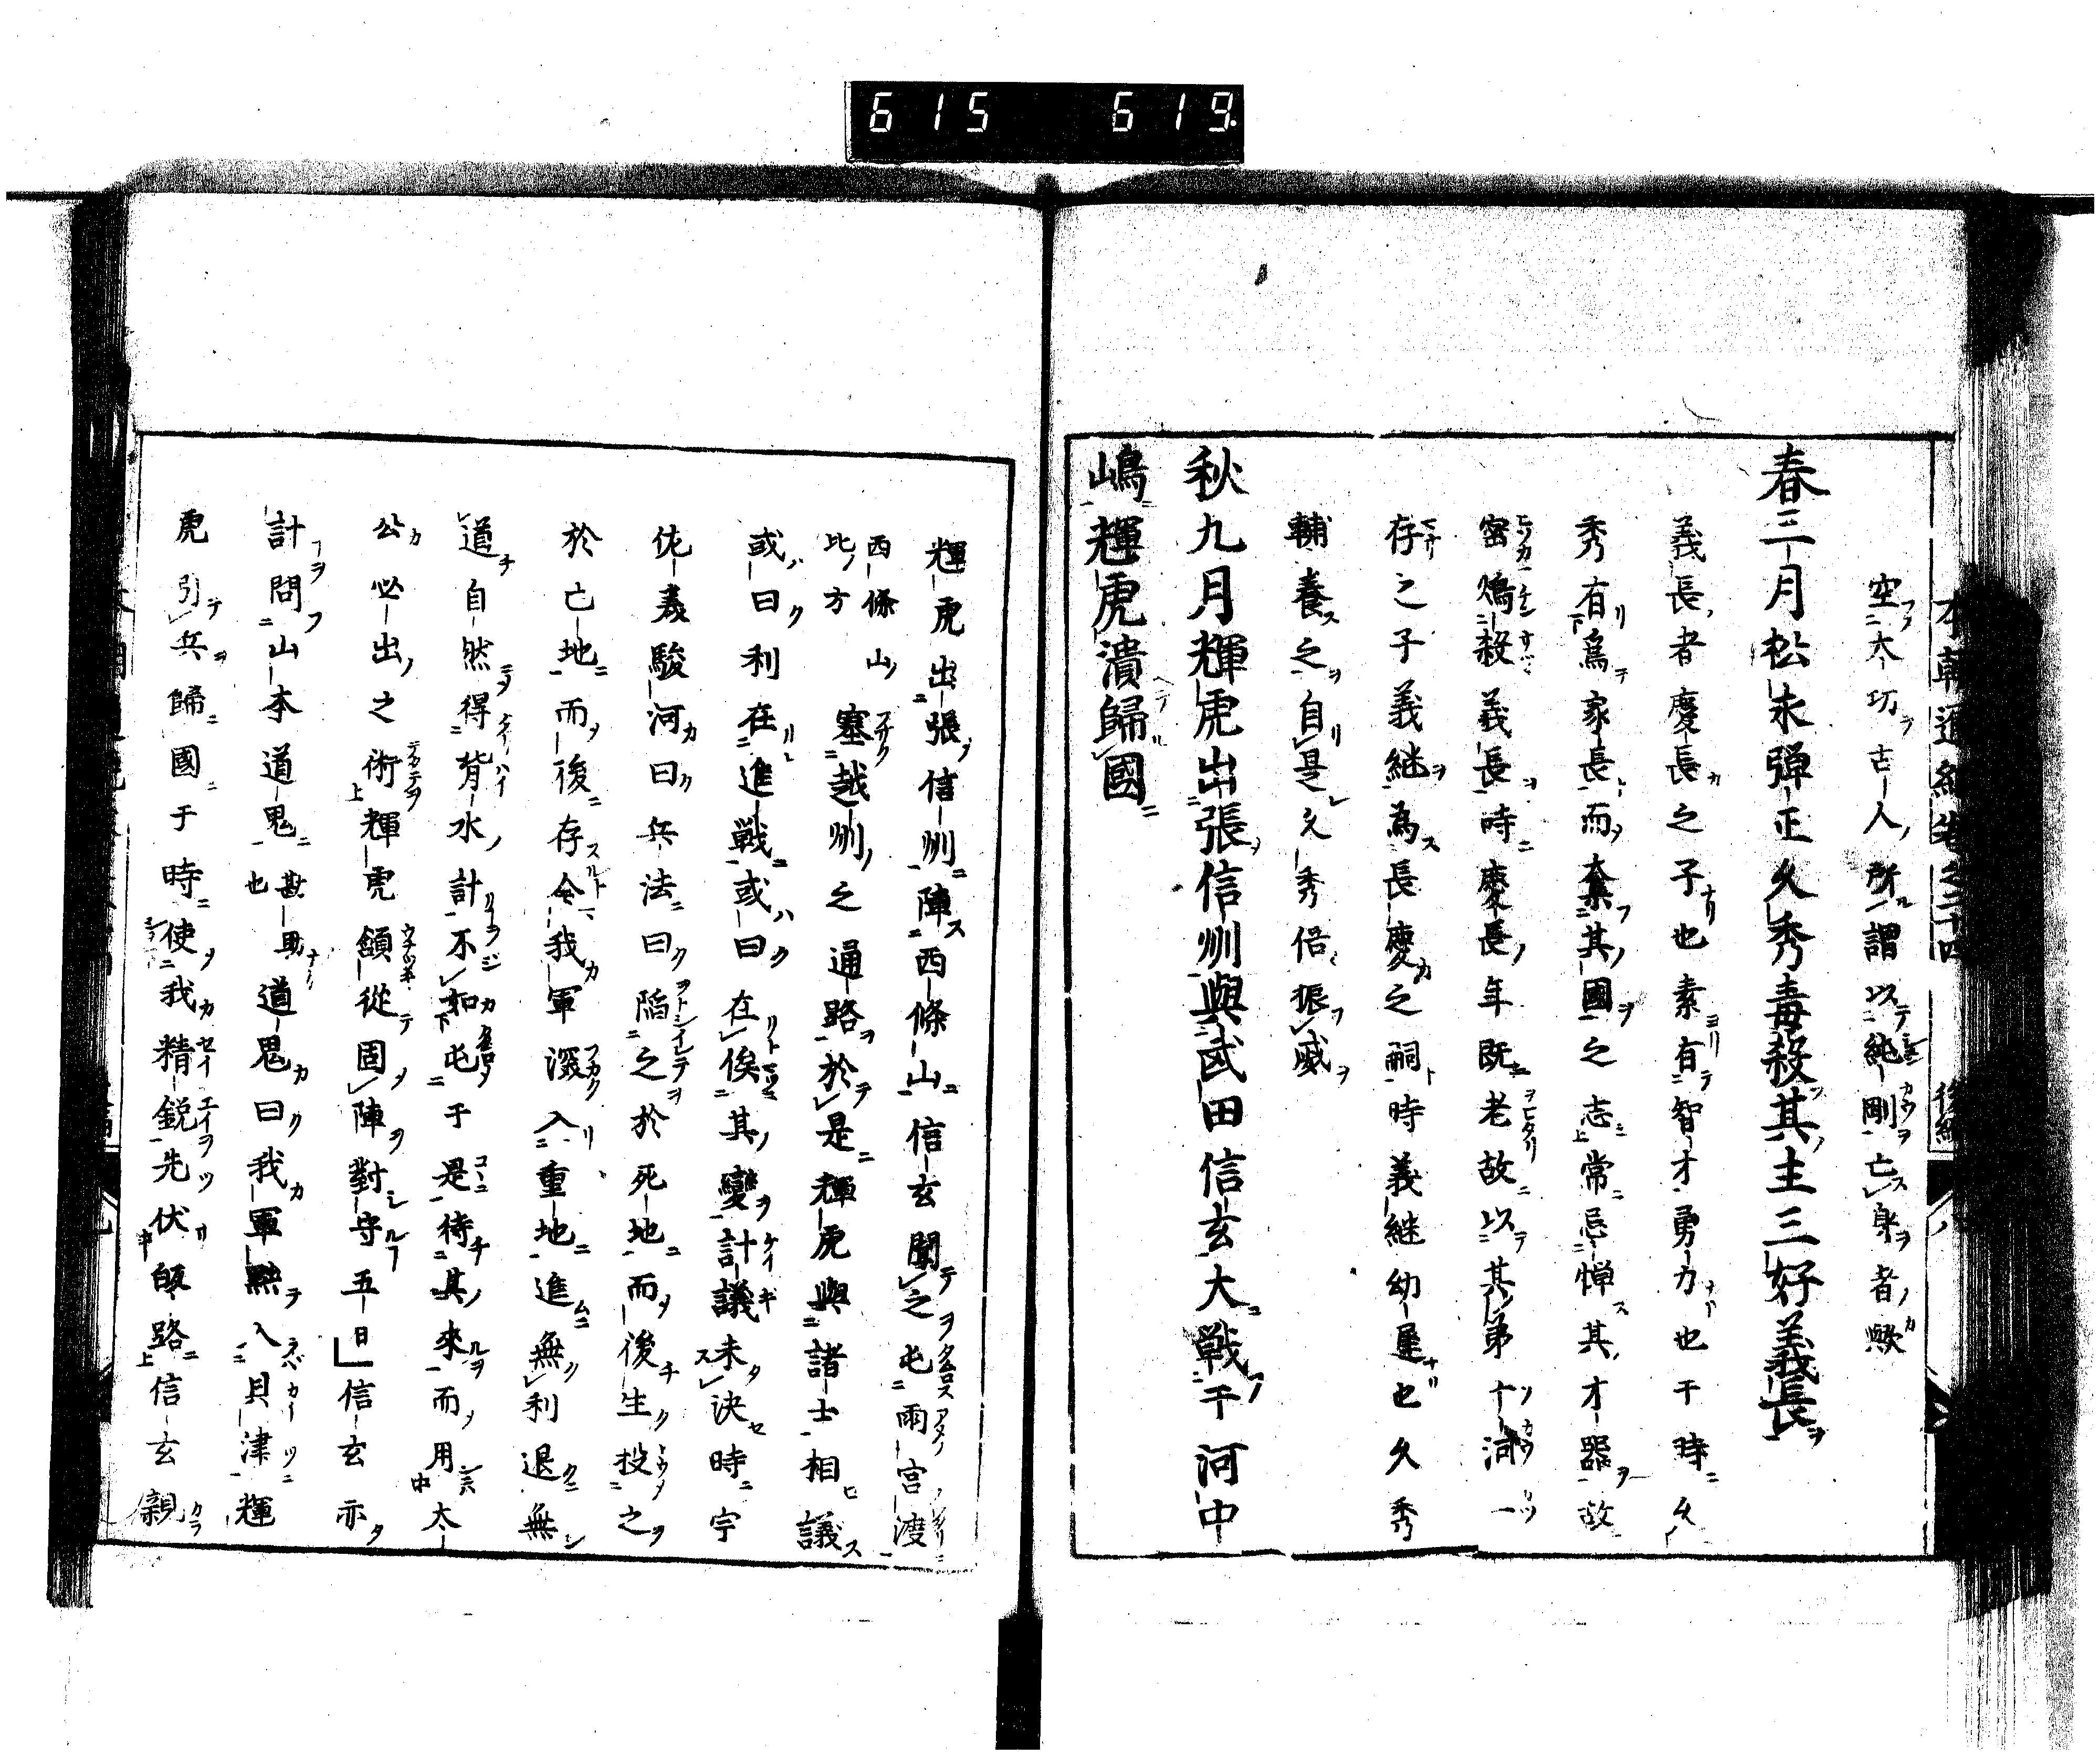 615 619
空太功古人所謂以純剛亡身者歟
春三月松永弾正久秀毒殺其主三好義長
義長者慶長之子也素有智才勇力也于時久
秀有為家長而奪其國之志常忌憚其才器故
密鴆殺義長時慶長年既老故以其弟十河一
存之子義継為長慶之嗣時義継幼崖也久秀
輔養之自是久秀倍振威
秋九月輝虎出張信州與武田信玄大戦于河中
嶋輝虎潰歸國
輝虎出張信州陣西條山信玄聞之屯雨宮渡
西條山比方塞越州之通路於是輝虎與諸士相議
或曰利在進戦或曰在俟其變計議未決時宇
佐義駿河曰兵法曰陥之於死地而後生投之
於亡地而後存今我軍深入重地進無利退無
道自然得背水計不如屯于是待其來而用太
公必出之術輝虎頷従固陣對守五日信玄亦
計問山本道鬼勘助也道鬼曰我軍黙入貝津輝
虎引兵歸國于時使我精鋭先伏皈路信玄親